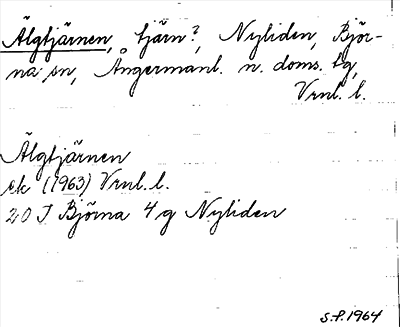 Älgtjärnen, tjärn?, Nyliden, Björ-
na sn, Ångermanl. n. doms. tg,
Vrnl. l.
Älgtjärnen
ek (1963) Vrnl. l.
20 J Björna 4 g Nyliden
S.P. 1964